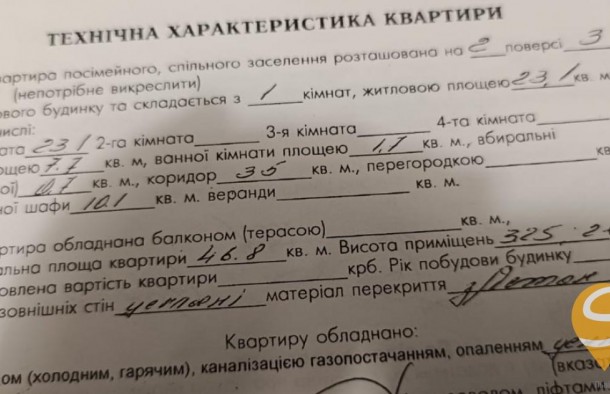 ТЕХНІЧНА ХАРАКТЕРИСТИКА КВАРТИРИ
вартира посімейного, спільного заселення розташована на 2 поверсі 3
(непотрібне викреслити)
ового будинку та складається з 1 кімнат, житловою площею 23,1 кв. м
числі:
ата 23,1 2-га кімната 3-я кімната 4-та кімната
ощею 7.7 кв. м, ванної кімнати площею 1,7 кв. м., вбиральні
ої) 0.7 кв. м., коридор 3 5 кв. м., перегородкою кв
ної шафи 10.1 кв. м. веранди кв. м.
ртира обладнана балконом (терасою) кв. м.,
альна площа квартири 46.8 кв. м. Висота приміщень 325, 2
овлена вартість квартири крб. Рік побудови будинку
зовнішніх стін цегляні матеріал перекриття
Квартиру обладнано:
ом (холодним, гарячим), каналізацією газопостачанням, опаленням
(вказ
ліфтами